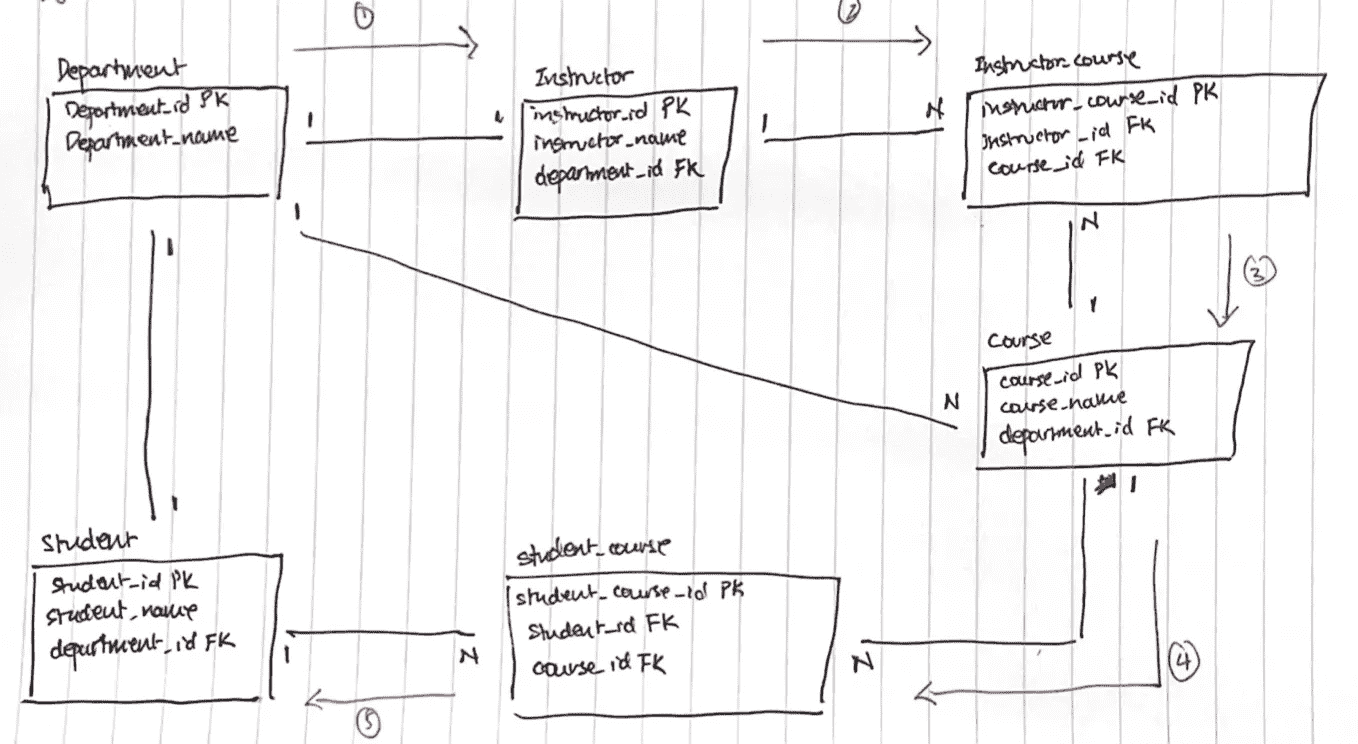 ①
②
Department
Department_id PK
Department_name
1
1
Instructor
instructor_id PK
instructor_name
department_id FK
1
N
Instructor_course
instructor_course_id PK
instructor_id FK
course_id FK
1
1
N
1
③
N
Course
course_id PK
course_name
department_id FK
1
1
Student
student_id PK
student_name
department_id FK
1
N
student_course
student_course_id PK
student_id FK
course_id FK
N
④
⑤